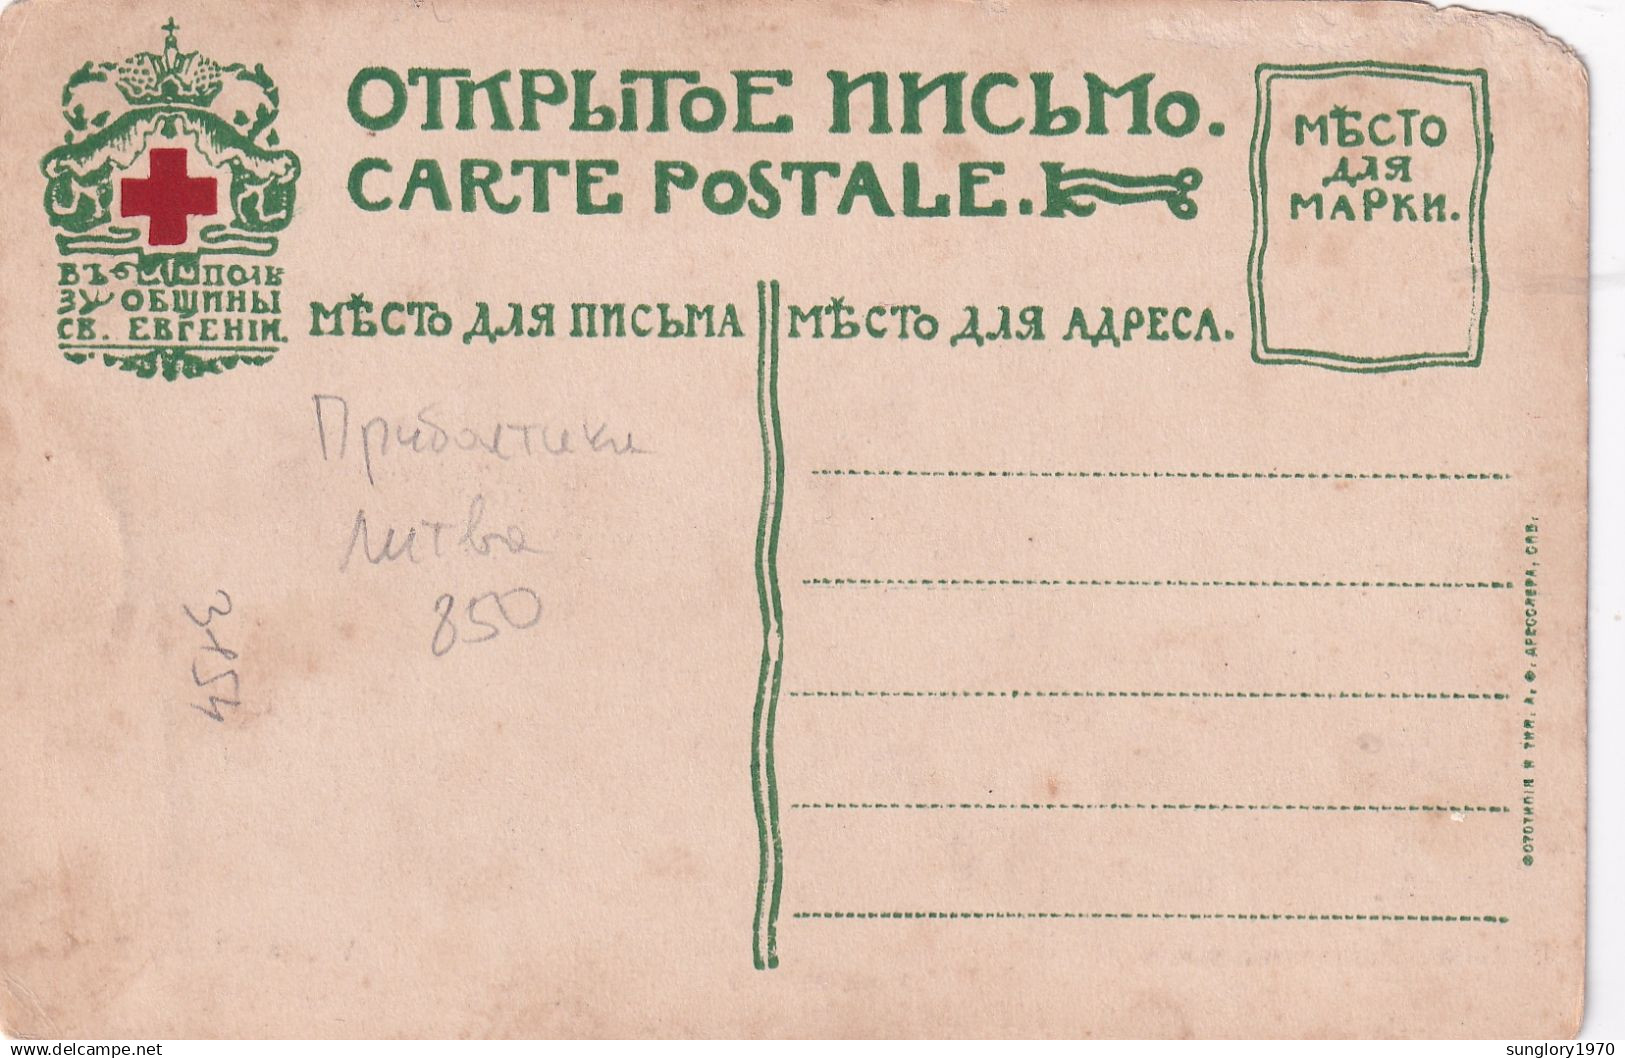 ОТКРЫТОЕ ПИСЬМО.
CARTE POSTALE.
МѢСТО
ДЛЯ
МАРКИ.
ВЪ ПОЛЬ
ЗУ ОБЩИНЫ
СВ. ЕВГЕНІИ.
МѢСТО ДЛЯ ПИСЬМА
МѢСТО ДЛЯ АДРЕСА.
Прибалтика
Литва
850
3154
ФОТОТИПІЯ И ТИП. А. Ф. ДРЕССЛЕРА, СПБ.
delcampe.net
sunglory1970